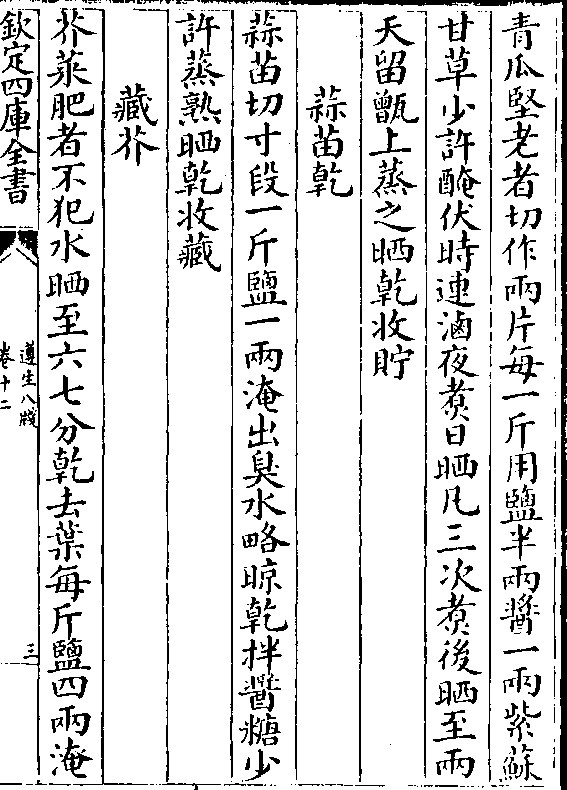 青瓜堅老者切作兩片每一斤用鹽半兩醬一兩紫蘇
甘草少許醃伏時連滷夜煑日晒凡三次煑後晒至兩
天留甑上蒸之晒乾收貯
蒜苗乾
蒜苗切寸段一斤鹽一兩淹出臭水略晾乾拌醬糖少
許蒸熟晒乾收藏
藏芥
芥菜肥者不犯水晒至六七分乾去葉每斤鹽四兩淹
欽定四庫全書
遵生八牋
卷十二
三